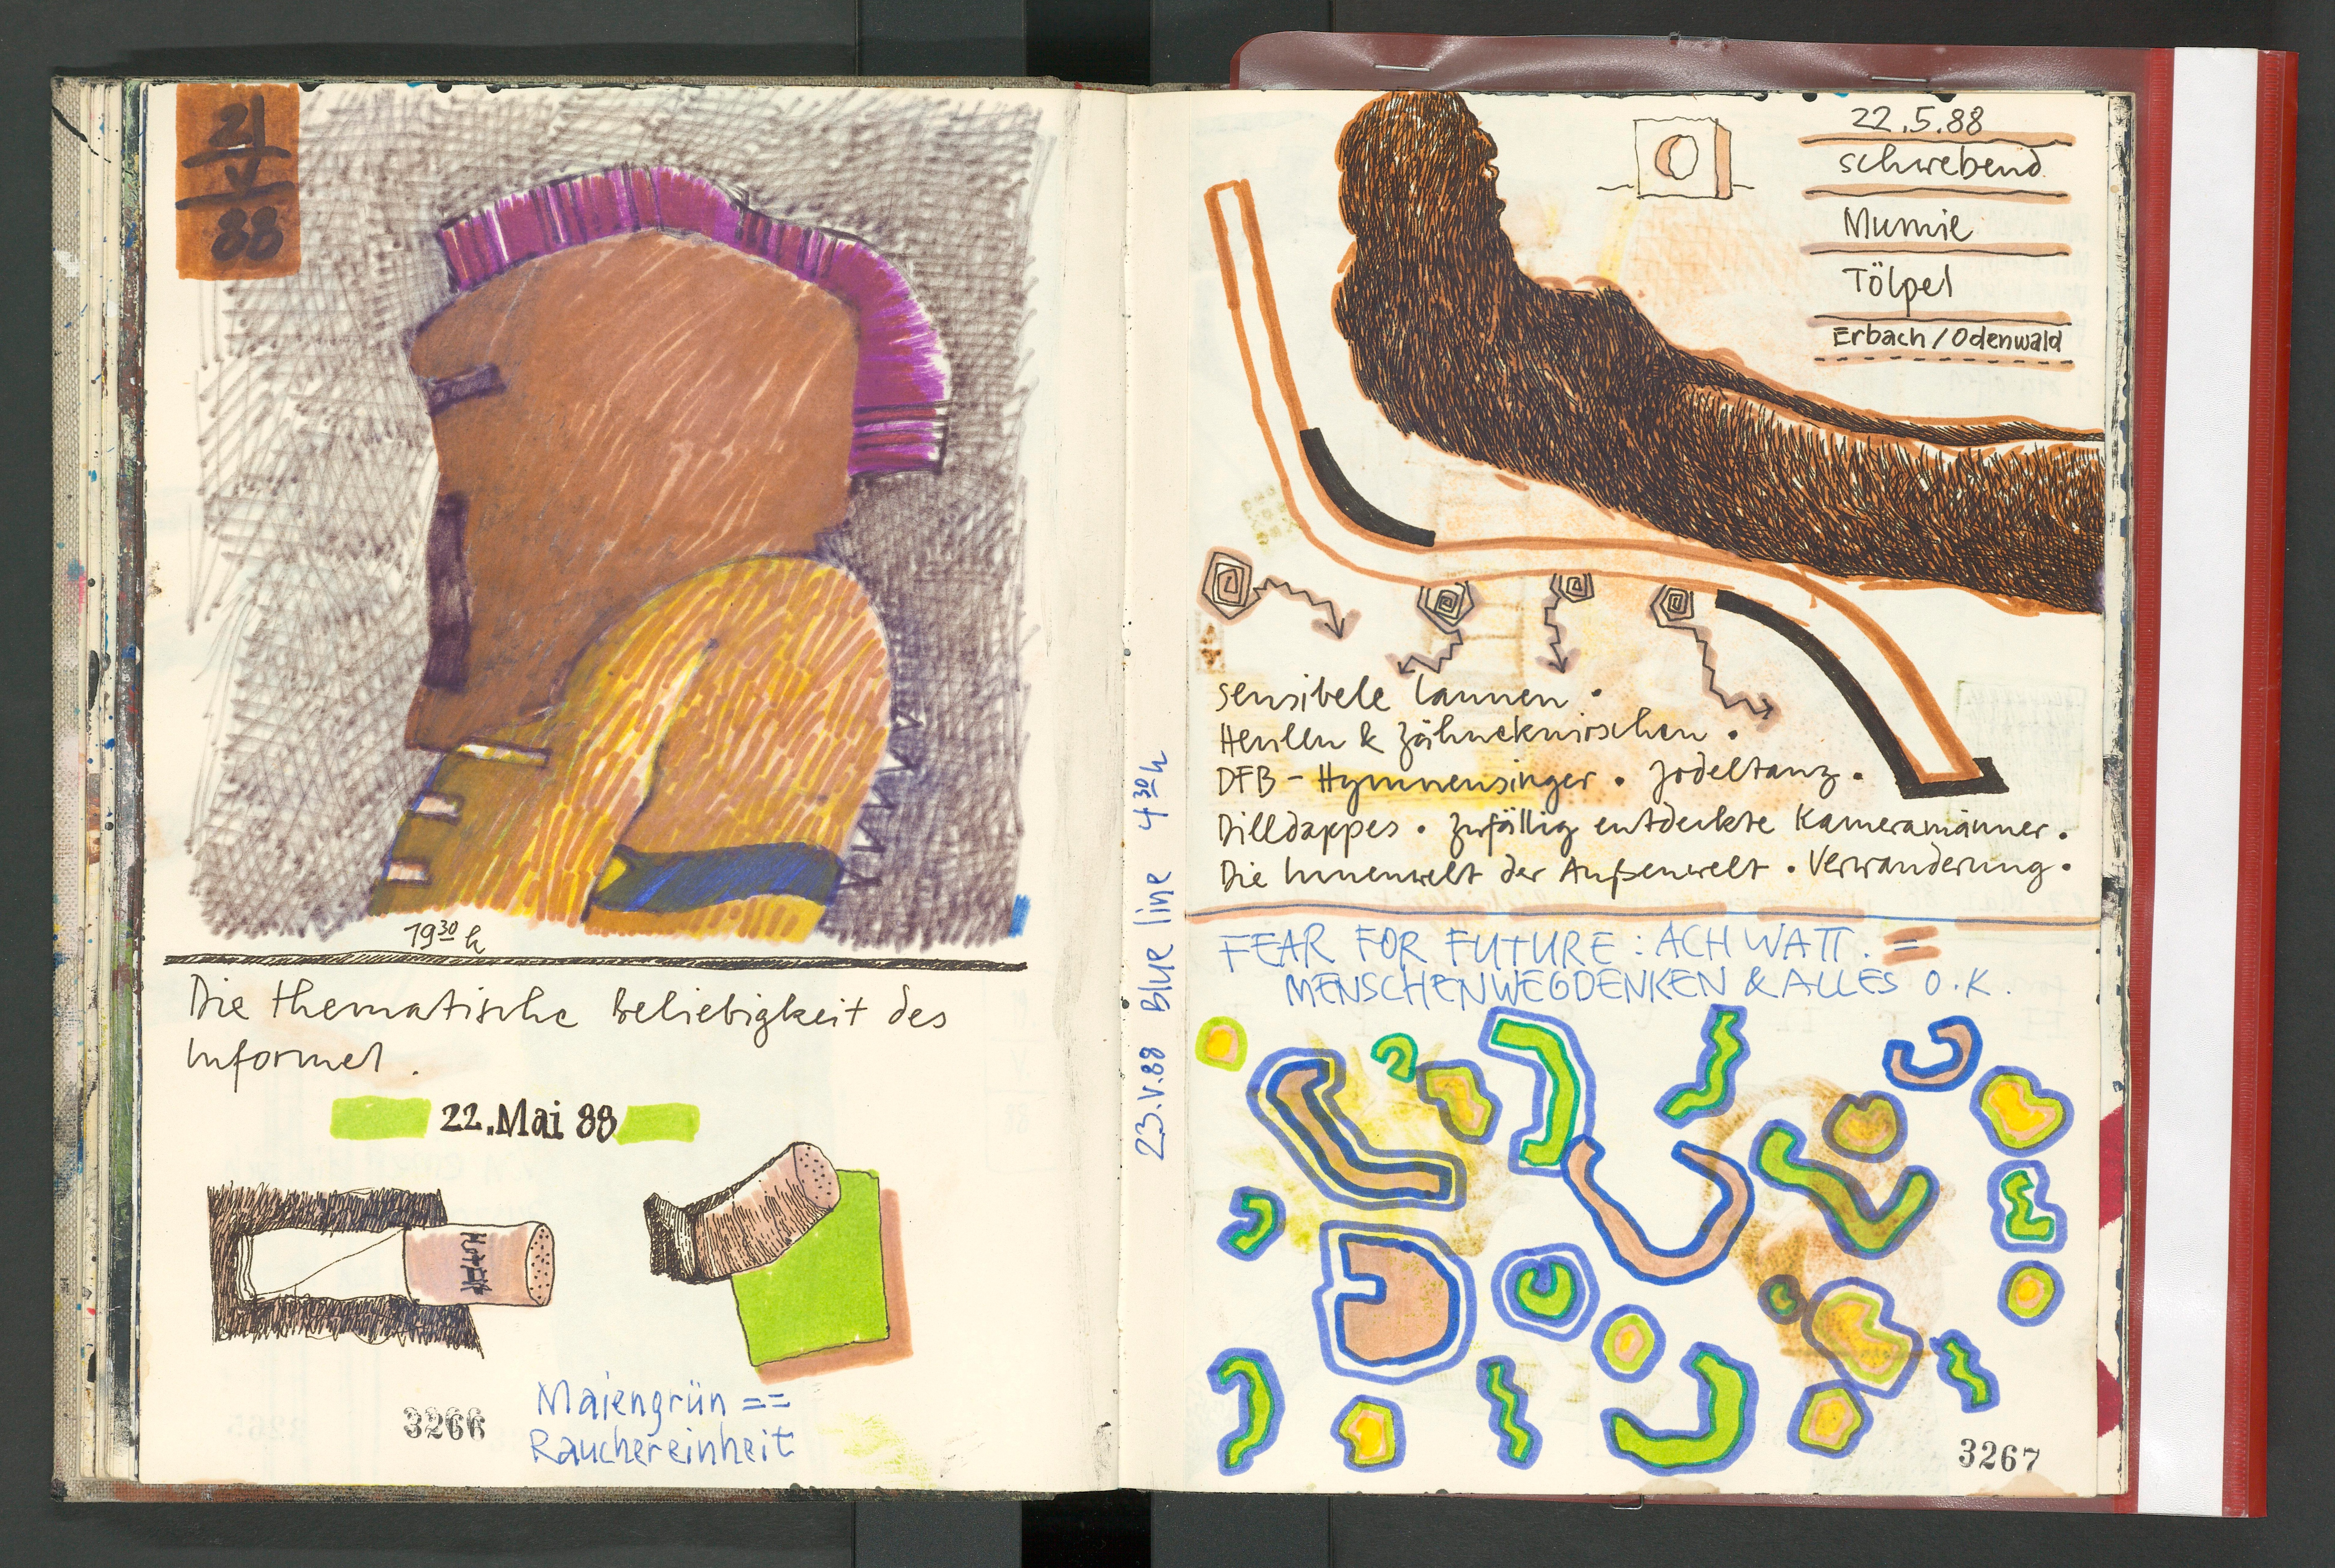 21
V
88
19³⁰ h
Die thematische Beliebigkeit des
Informel.
22. Mai 88
3266
Maiengrün ==
Rauchereinheit
23.V.88 Blue line 4³⁰ h
22.5.88
schwebend
Mumie
Tölpel
Erbach/Odenwald
sensibele Launen •
Heulen & Zähneknirschen •
DFB-Hymnensinger • Jodeltanz •
Dilldappes • Zufällig entdeckte Kameramänner •
Die Innenwelt der Außenwelt • Verwanderung •
FEAR FOR FUTURE : ACH WATT. =
MENSCHENWEGDENKEN & ALLES O.K.
3267